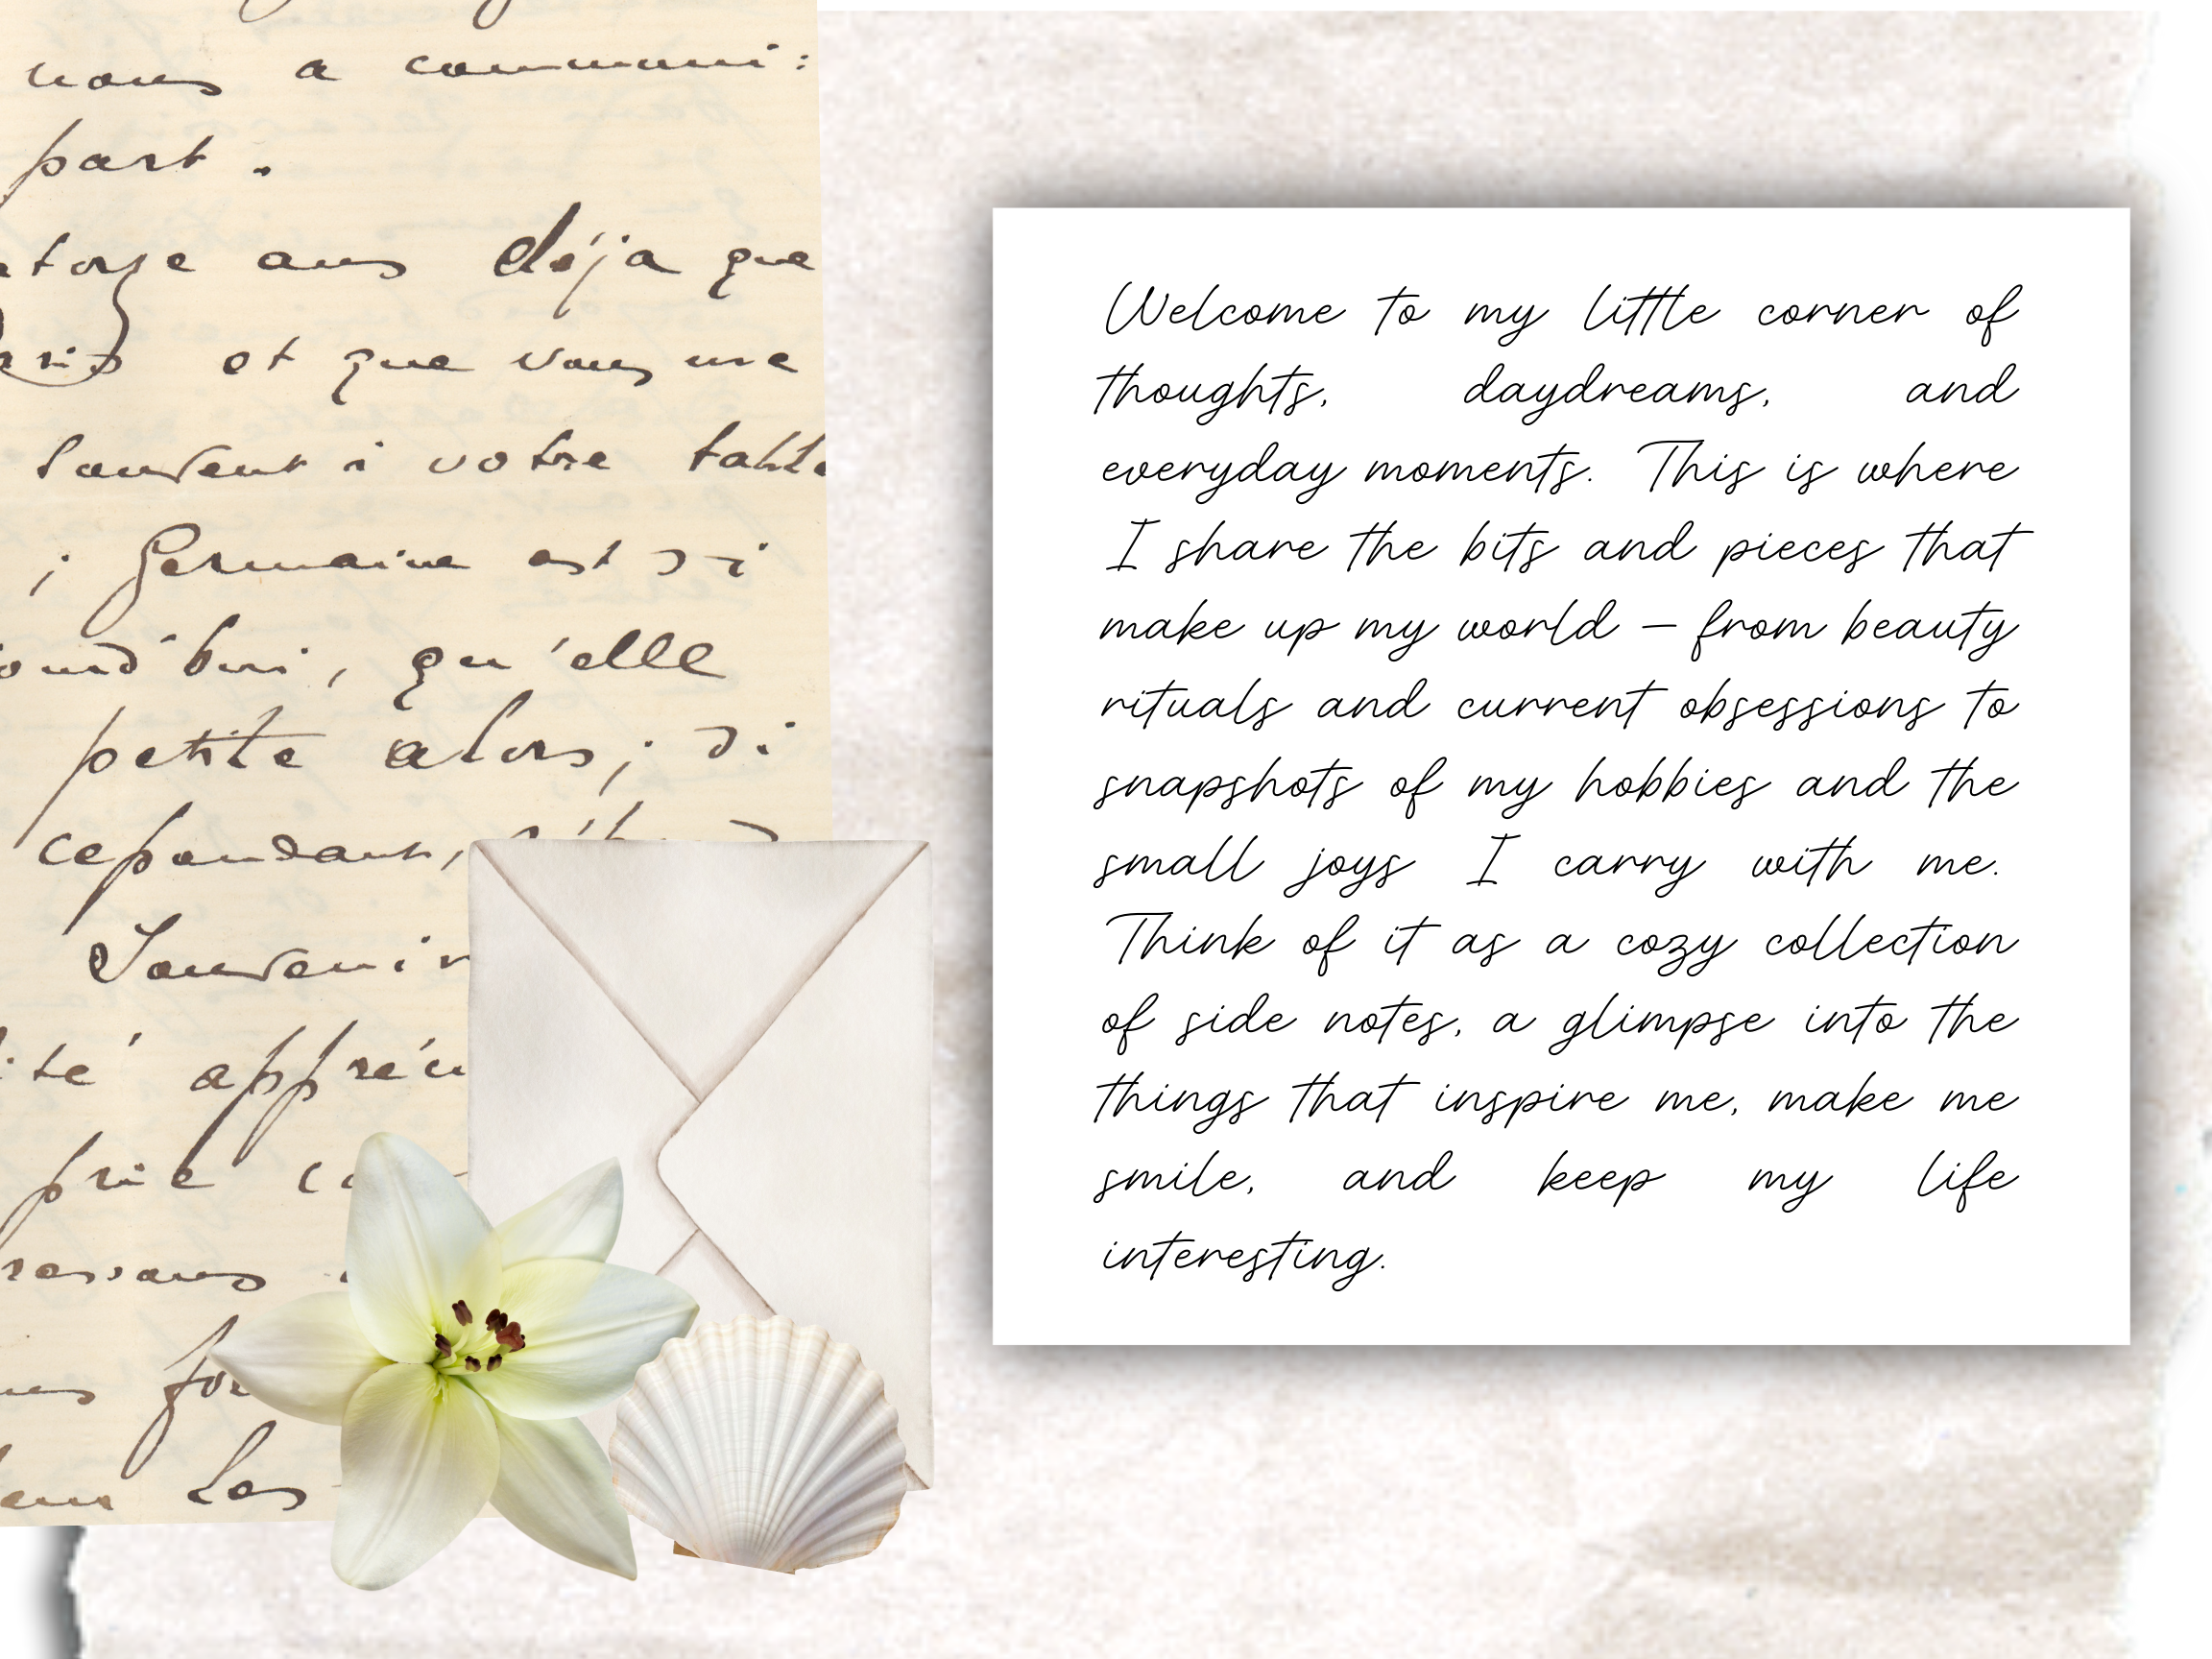 nous a communi:
part.
ans déja que
et que vous me
souvent à votre table
; Germaine est si
qu'elle
petite alors; si
cependant,
Souvenir
prie
Les
Welcome to my little corner of
thoughts, daydreams, and
everyday moments. This is where
I share the bits and pieces that
make up my world – from beauty
rituals and current obsessions to
snapshots of my hobbies and the
small joys I carry with me.
Think of it as a cozy collection
of side notes, a glimpse into the
things that inspire me, make me
smile, and keep my life
interesting.